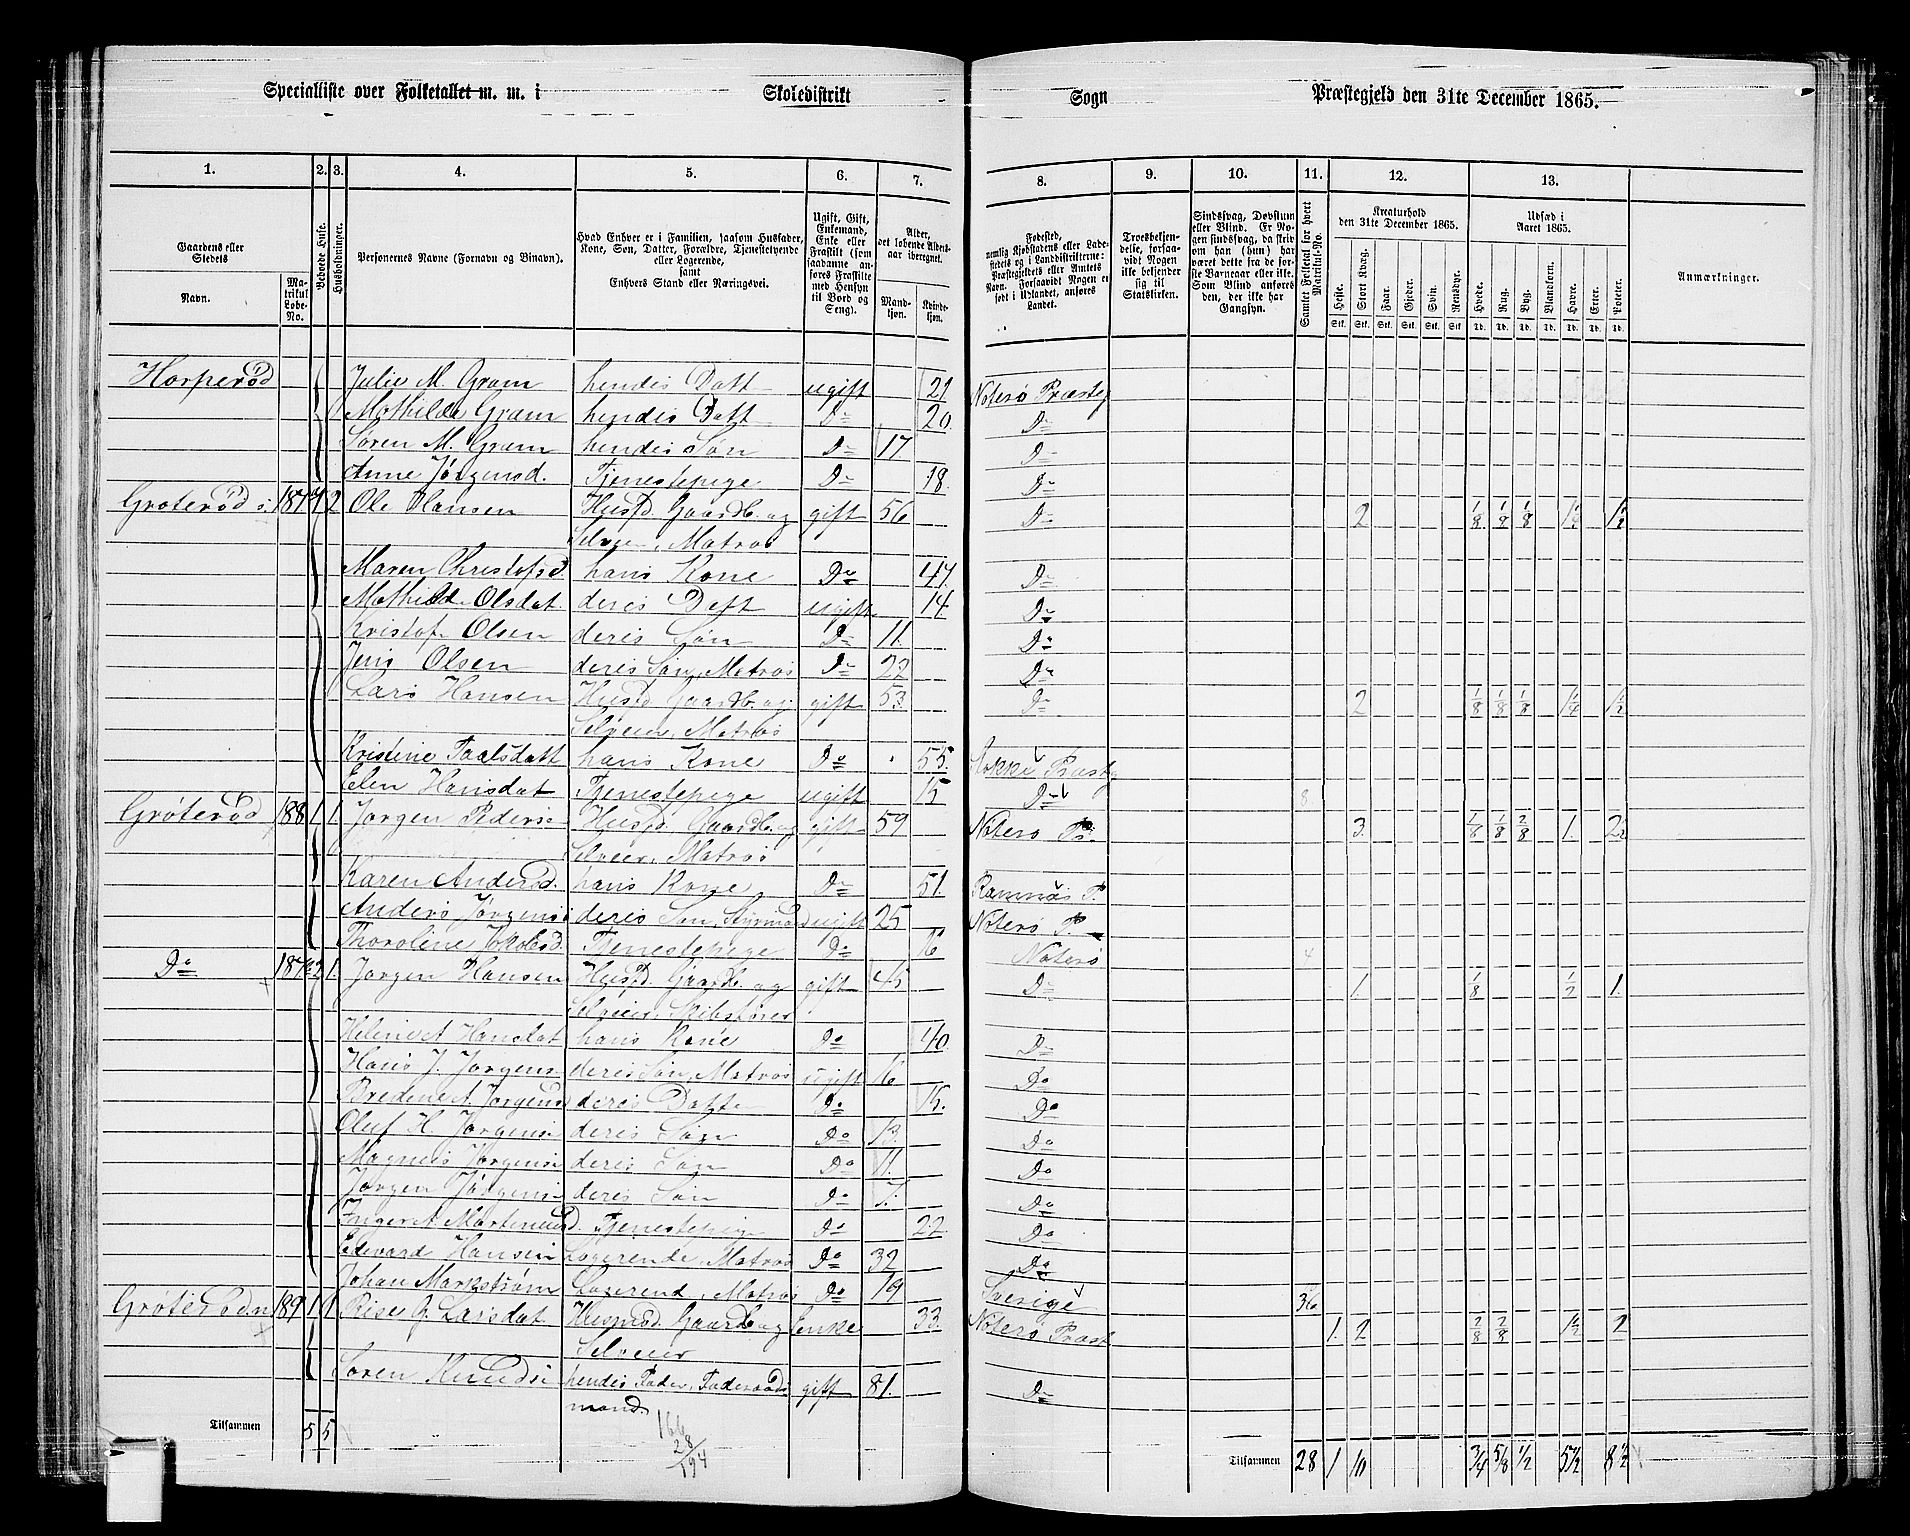 Specialliste over Folketallet m. m. i Skoledistrikt Sogn Præstegjeld den 31te December 1865.
1. 2. 3. 4. 5. 6. 7. 8. 9. 10. 11. 12. 13.
Gaardens eller Stedets Navn.
Matrikul Løbe-No.
Beboede Huse.
Husholdninger.
Personernes Navne (Fornavn og Binavn).
Hvad Enhver er i Familien, saasom Husfader, Kone, Søn, Datter, Forældre, Tjenestetyende eller Logerende, samt Enhvers Stand eller Næringsvei.
Ugift, Gift, Enkemand, Enke eller Fraskilt (som saadanne anføres Fraskilte med Hensyn til Bord og Seng).
Alder, det løbende Aldersaar iberegnet.
Mandkjøn. Kvindekjøn.
Fødested, nemlig Kjøbstadens eller Ladestedets og i Landdistrikterne: Præstegjeldets eller Amtets Navn. Forsaavidt Nogen er født i Udlandet, anføres Landet.
Troesbekjendelse, forsaavidt Nogen ikke bekjender sig til Statskirken.
Sindssvag, Døvstum eller Blind. Er Nogen sindssvag, da skriv om han (hun) har været dette fra de første Barneaar eller ikke. Som Blind anføres den, der ikke har Gangsyn.
Samlet Folketal for hvert Matrikul-No.
Kreaturhold den 31te December 1865.
Heste. Stort Kvæg. Faar. Gjeder. Svin. Rensdyr.
Udsæd i Aaret 1865.
Hvede. Rug. Byg. Blandkorn. Havre. Erter. Poteter.
Anmærkninger.
Harperød Julie M. Gram hendes Datt ugift 21 Nøterø Præsteg
Mathilde Gram hendes Datt Do 20. Do
Søren M. Gram hendes Søn Do 17. Do
Anne Jørgensd. Tjenestepige Do 18. Do
Grøterød s. 187 1 2 Ole Hansen Husfd. Gaardb. og gift 56 Do 2 1/8 1/8 1/8 1½
Selveier, Matros
Maren Christofsd. hans Kone Do 47. Do
Mathilde Olsdat. deres Datt ugift 14. Do
Kristof Olsen deres Søn Do 11. Do
Jens Olsen deres Søn, Matros Do 22 Do
Lars Hansen Husfd. Gaardb. og gift 53 Do 2 1/8 1/8 1/8 1½
Selveier, Matros
Kristine Paalsdatt hans Kone Do 55. Stokke Præsteg
Elen Hansdat Tjenestepige ugift 15 Do 8
Grøterød 188 1 1. Jørgen Peders Husfd. Gaardb. og gift 59 Nøterø Pr. 3. 1/8 1/8 2/8 1. 2½
Selveier, Matros
Karen Andersd. hans Kone Do 51. Ramnæs P.
Anders Jørgens deres Søn, Styrmand ugift 25 Nøterø P
Thoroline Jakobsd. Tjenestepige Do 16 Nøterø 4
Do 187 2 1. Jørgen Hansen Husfd. Gaardb. og gift 45 Do 1. 1/8 1/2 1.
Selveier, Skibsfører
Helene A Hansdat hans Kone Do 40. Do
Hans J. Jørgens deres Søn, Matros ugift 16 Do
Bredine A. Jørgensd deres Datte Do 15. Do
Oluf H. Jørgens deres Søn Do 13. Do
Magnus Jørgens deres Søn Do 11. Do
Jørgen Jørgens deres Søn Do 7. Do
Inger A Martinusd. Tjenestepig Do 22 Do
Edevard Hansen Logerende, Matros Do 32 Do
Johan Markstrøm Logerend, Matros Do 19 Sverige 36
Grøterød n 189 1 1 G. Larsdat. Husmd. Gaardb. og Enke 33. Nøterø Præst 1. 2 2/8 2/8 1½ 2
Selveier
Søren Knuds hendes Fader, Føderaads gift 81. Do
mand.
Tilsammen 5 5
166
28
194
Tilsammen 28 1 10 3/4 5/8 1/2 5½ 8½